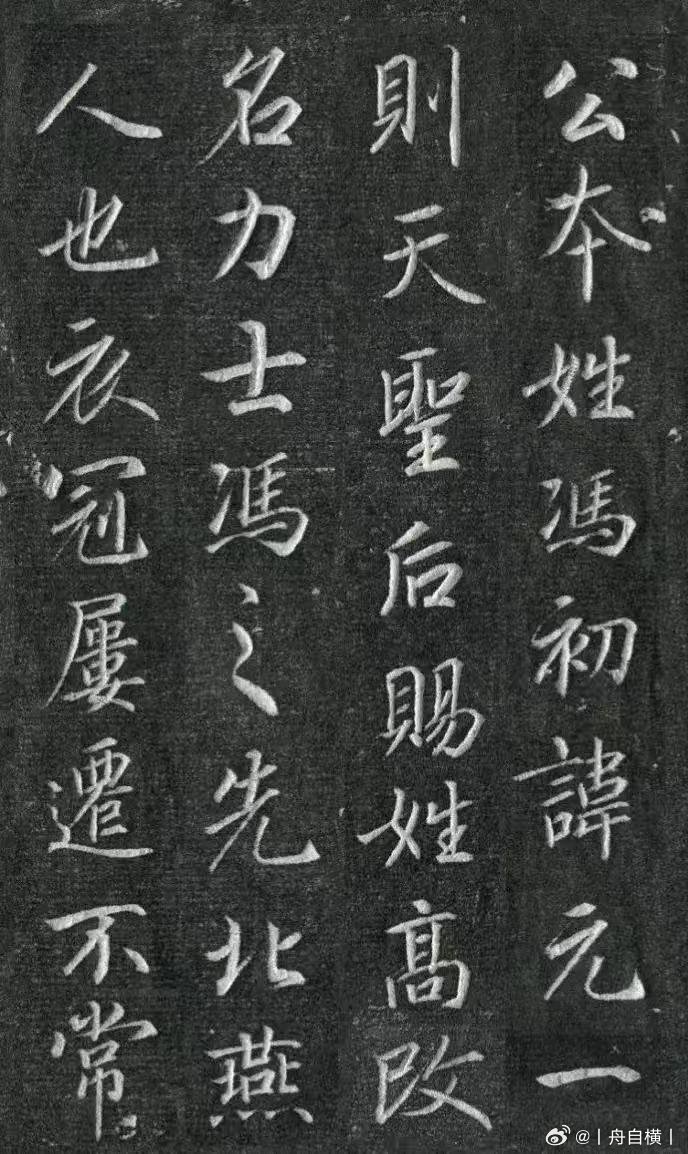 公本姓馮初諱元一
則天聖后賜姓高改
名力士馮之先北燕
人也衣冠屢遷不常
@丨舟自横丨